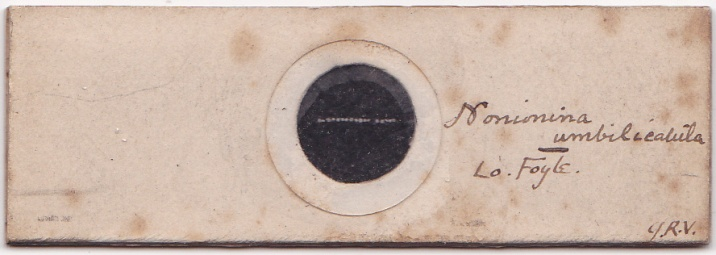 Nonionina
umbilicatula
Lo. Foyle.